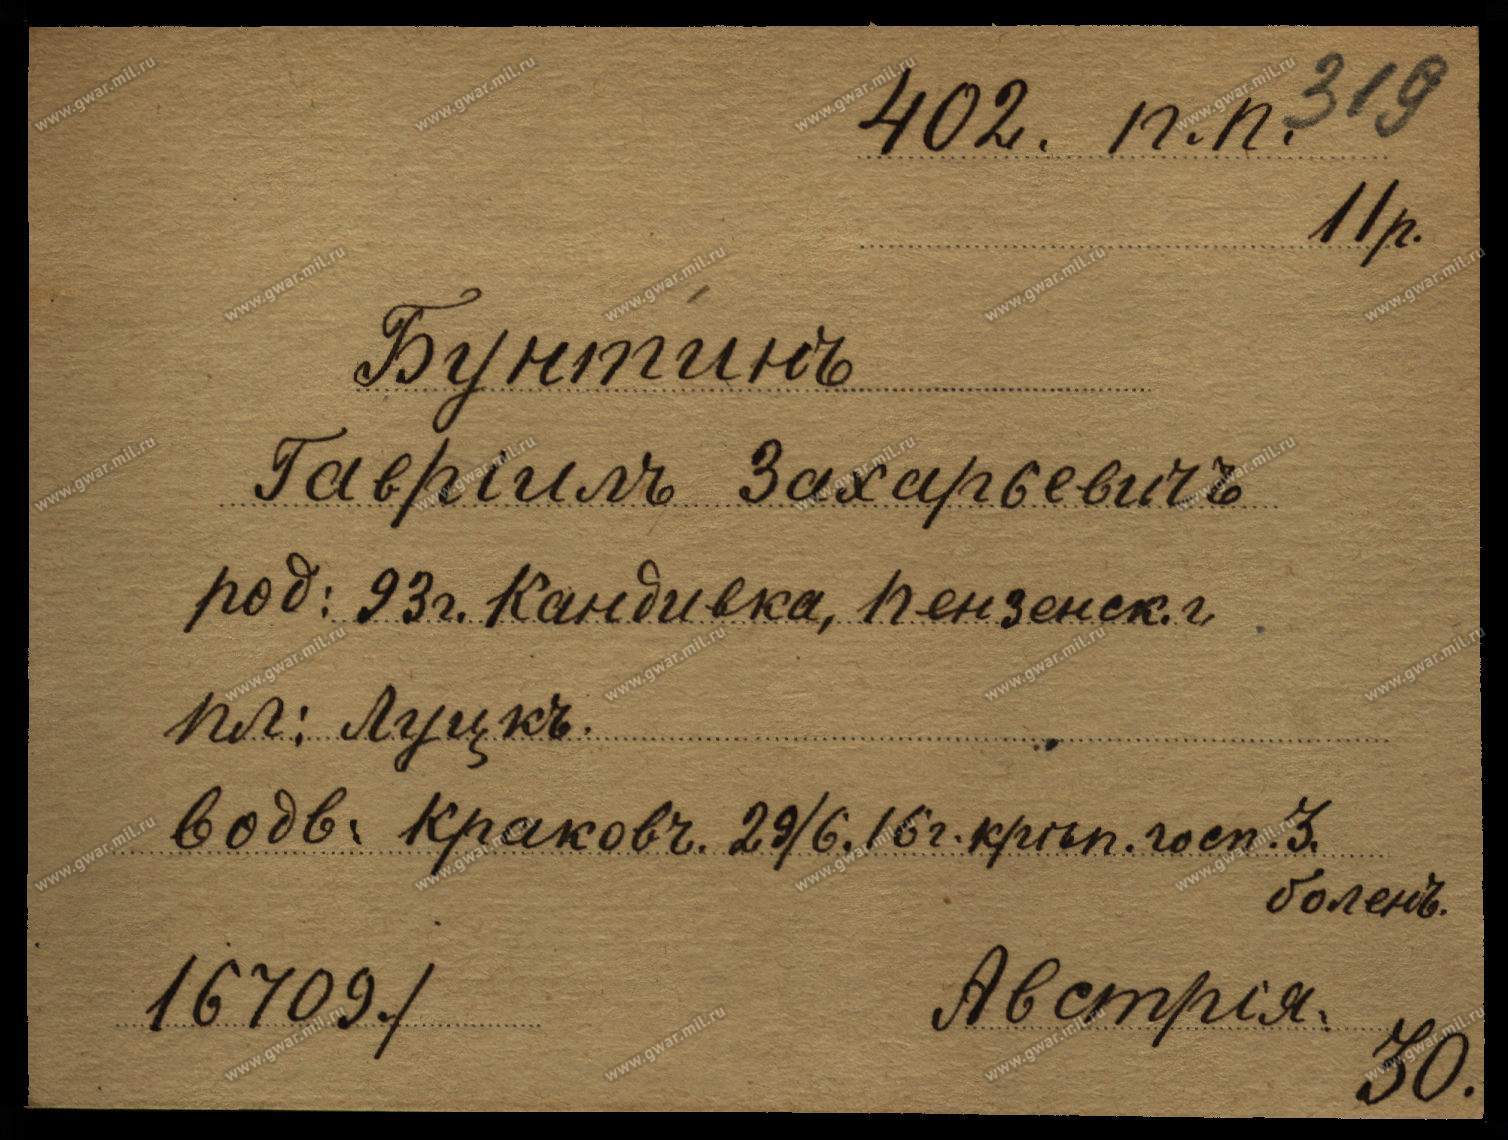 319
402. п.п.
11р.
Бунтинъ
Гавріилъ Захарьевичъ
род: 93г. Кандивка, Пензенск. г.
пл: Луцкъ.
водв: Краковъ. 29/6. 16г. крѣп. госп. 3.
боленъ.
16709./
Австрія.
30.
www.gwar.mil.ru